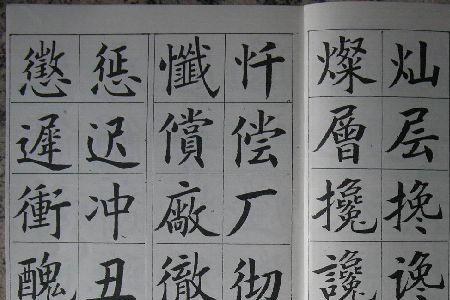 灿层搀谗
燦層攙讒
忏偿厂彻
懺償廠徹
惩迟冲丑
懲遲衝醜